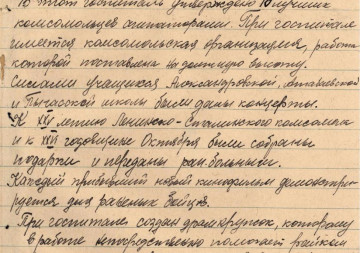 В этот госпиталь утверждало 10 лучших
комсомольцев агитаторами. При госпитале
имеется комсомольская организация, работа
которой поставлена на должную высоту.
Силами учащихся Александровской,
и Пычасской школы были даны концерты.
К XXI летию Ленинско-Сталинского комсомола
и к XXII годовщине Октября были собраны
подарки и переданы ран.больным.
Каждый прибывший новый кинофильм демонстри
руется для раненых бойцов.
При госпитале создан драмкружок, которому
в работе непосредственно помогает райком